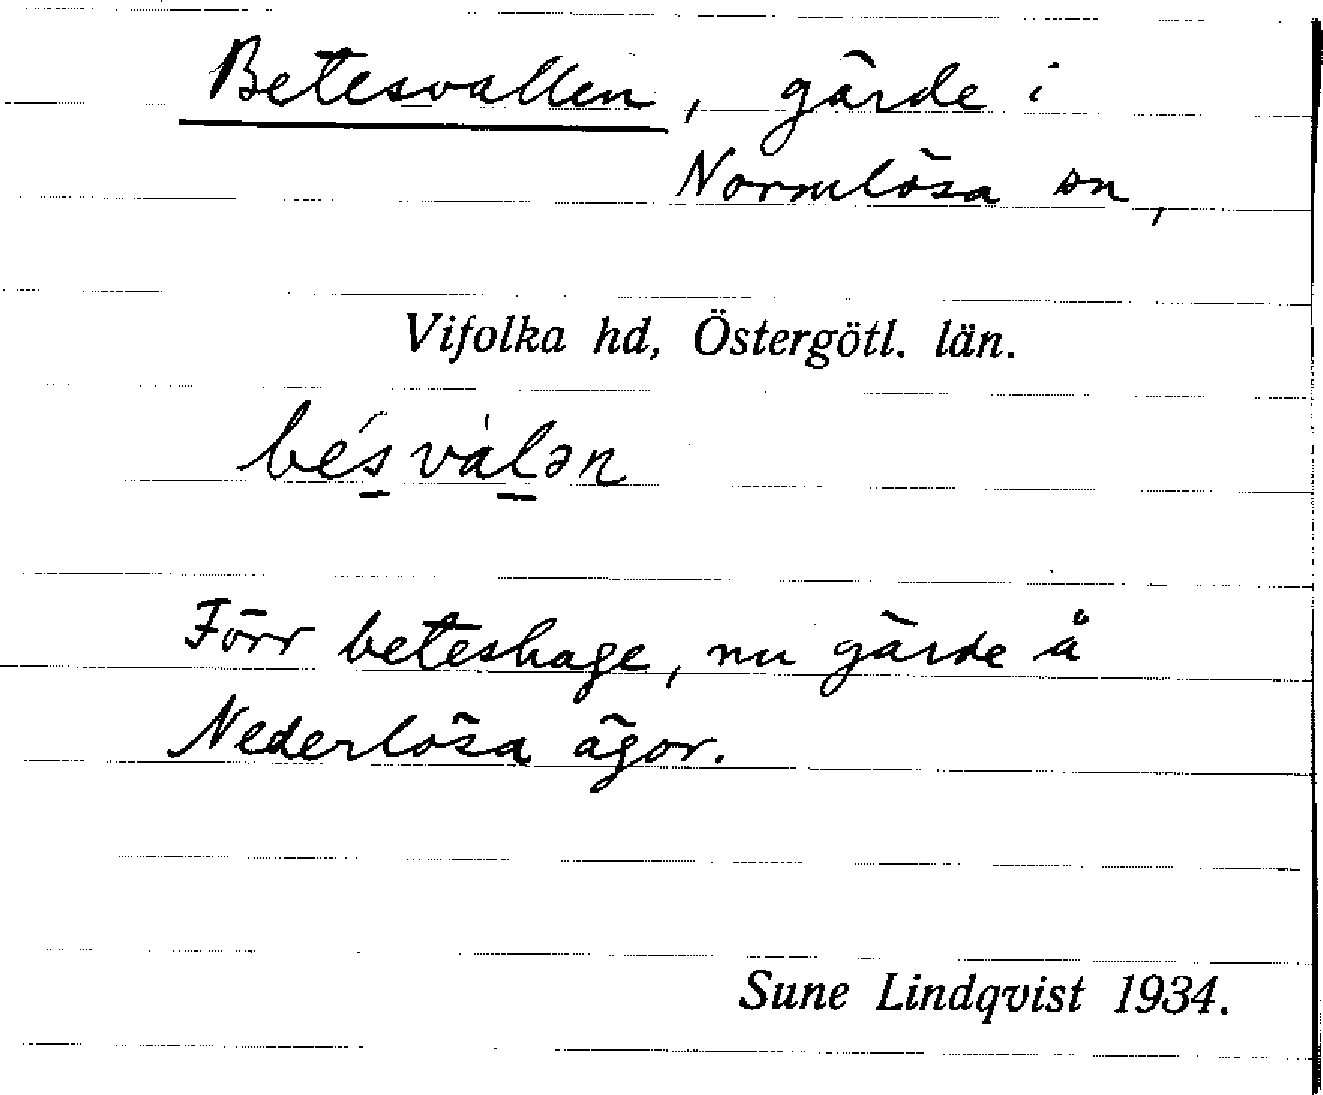 Betesvallen, gärde i
Normlösa sn,
Vifolka hd, Östergötl. län.
bés̠vàl̠ən
Förr beteshage, nu gärde å
Nederlösa ägor.
Sune Lindqvist 1934.